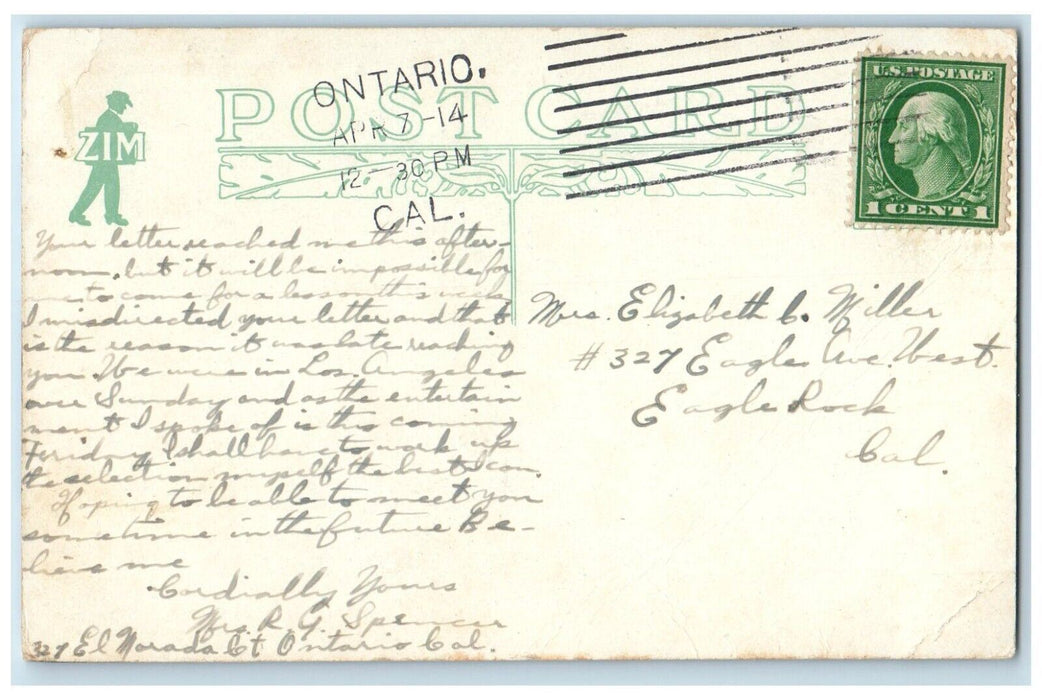 ONTARIO.
APR 7 - 14
12 - 30 PM
CAL.
POST CARD
ZIM
U.S. POSTAGE
1 CENT 1
Your letter reached me this after-
noon, but it will be impossible for
me to come for a lesson this week.
I misdirected your letter and that
is the reason it was late reaching
you. We were in Los Angeles
over Sunday and as the entertain
ment I spoke of is this coming
Friday I shall have to work up
the selection myself the best I can.
Hoping to be able to meet you
sometime in the future Be-
lieve me
Cordially Yours
Mrs. R. G. Spencer
327 El Morada Ct Ontario Cal.
Mrs. Elizabeth C. Miller
#327 Eagle Ave. West.
Eagle Rock
Cal.